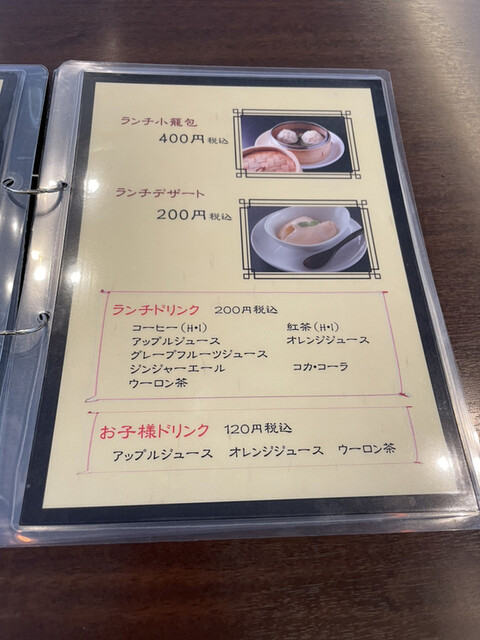 ランチ小籠包
400円税込
ランチデザート
200円税込
ランチドリンク 200円税込
コーヒー(H・I) 紅茶(H・I)
アップルジュース オレンジジュース
グレープフルーツジュース
ジンジャーエール コカ・コーラ
ウーロン茶
お子様ドリンク 120円税込
アップルジュース オレンジジュース ウーロン茶